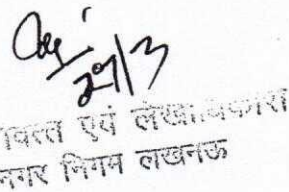 29/3
वित्त एवं लेखाधिकारी
नगर निगम लखनऊ